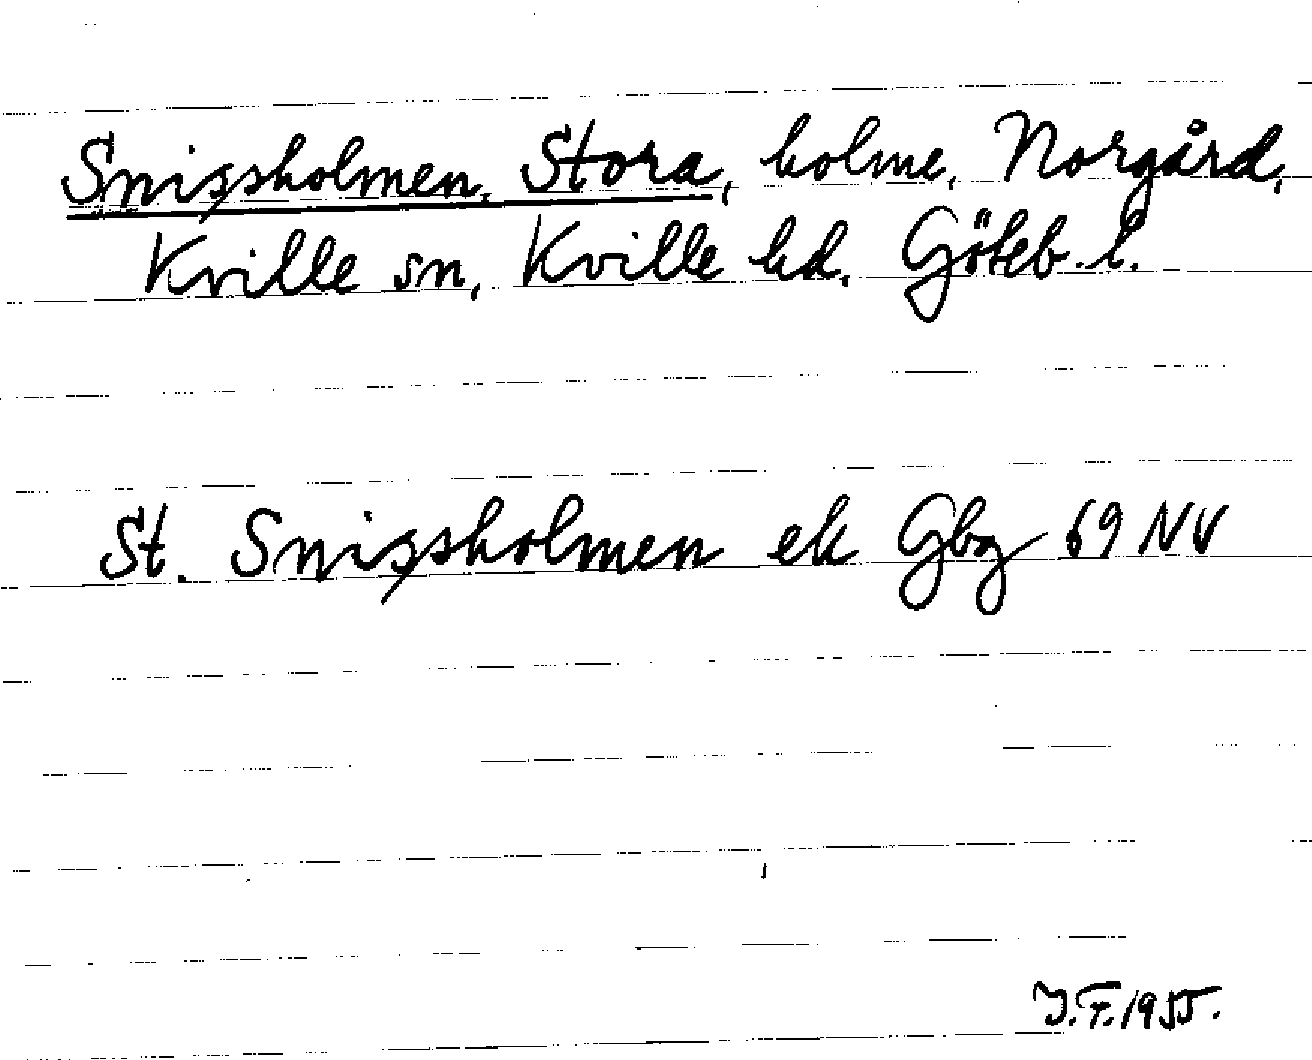 Snigsholmen, Stora, holme, Norgård,
Kville sn, Kville hd. Göteb. l.
St. Snigsholmen ek Gbg 69 NV
J.F. 1955.